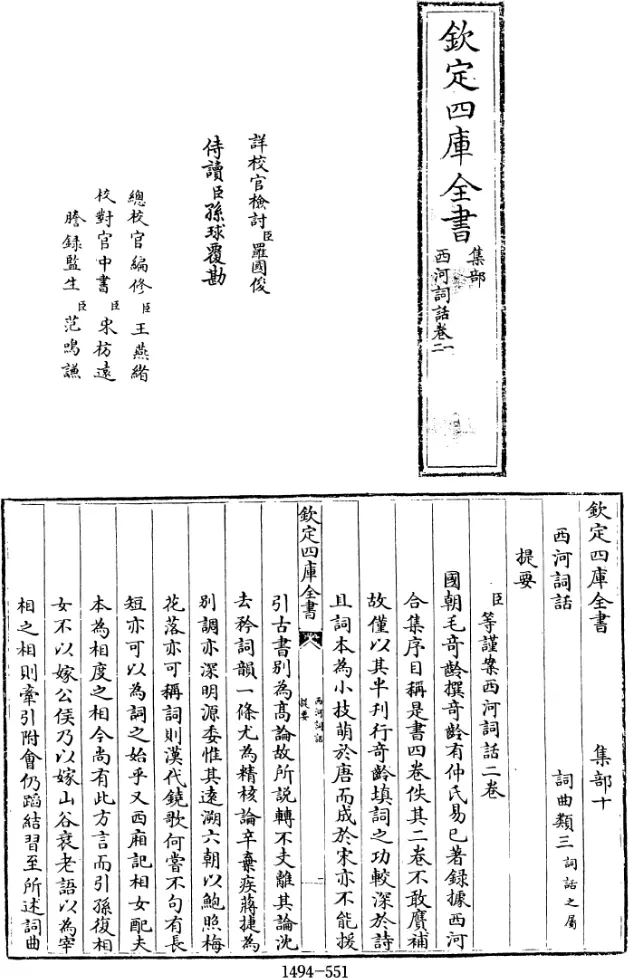 欽定四庫全書
集部
西河詞話卷一二
詳校官檢討臣羅國俊
侍讀臣孫球覆勘
總校官編修臣王燕緒
校對官中書臣宋枋遠
謄錄監生臣范鳴謙
欽定四庫全書 集部十
西河詞話 詞曲類三詞話之屬
提要
臣等謹案西河詞話二卷
國朝毛奇齡撰奇齡有仲氏易已著録據西河
合集序目稱是書四卷佚其二卷不敢贋補
故僅以其半刊行奇齡填詞之功較深於詩
且詞本為小技萌於唐而成於宋亦不能援
欽定四庫全書
西河詞話
提要
引古書别為髙論故所説轉不支離其論沈
去矜詞韻一條尤為精核論辛棄疾蔣捷為
别調亦深明源委惟其遠溯六朝以鮑照梅
花落亦可稱詞則漢代鐃歌何嘗不句有長
短亦可以為詞之始乎又西廂記相女配夫
本為相度之相今尚有此方言而引孫復相
女不以嫁公侯乃以嫁山谷衰老語以為宰
相之相則牽引附會仍蹈結習至所述詞曲
1494-551